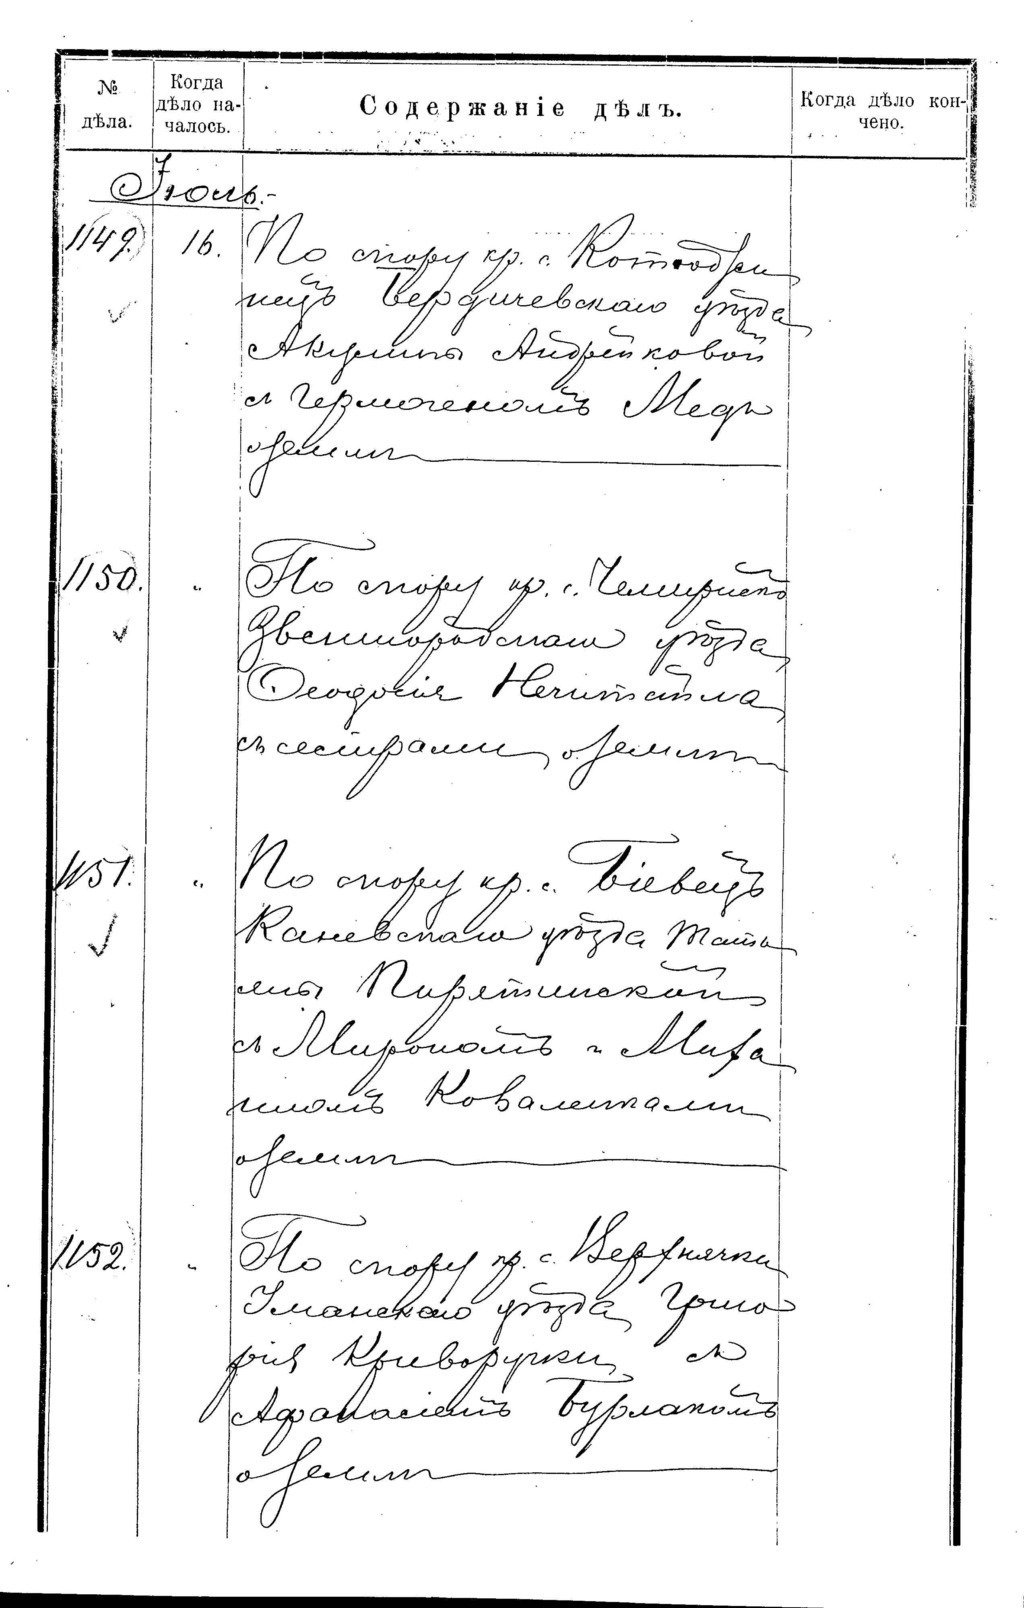 № дѣла.
Когда дѣло на-чалось.
Содержаніе дѣлъ.
Когда дѣло кон-чено.
Іюль.-
1149. 16. По спору кр. с.
нецъ Бердичевскаго уѣзда
Акулины Андрейковой
съ Гермогеномъ Медъ
о землѣ
1150. " По спору кр. с. Чемириско
Звенигородскаго уѣзда
Ѳеодосія Нечитайла
съ сестрами о землѣ
1151. " По спору кр. с. Біевецъ
Каневскаго уѣзда Матѣ
ены Пирятинской
съ Мирономъ и Миха
иломъ Коваленками
о землѣ
1152. " По спору кр. с. Верхнячки
Уманскаго уѣзда Григо
рія Криворучки съ
Афанасіемъ Бурлакомъ
о землѣ